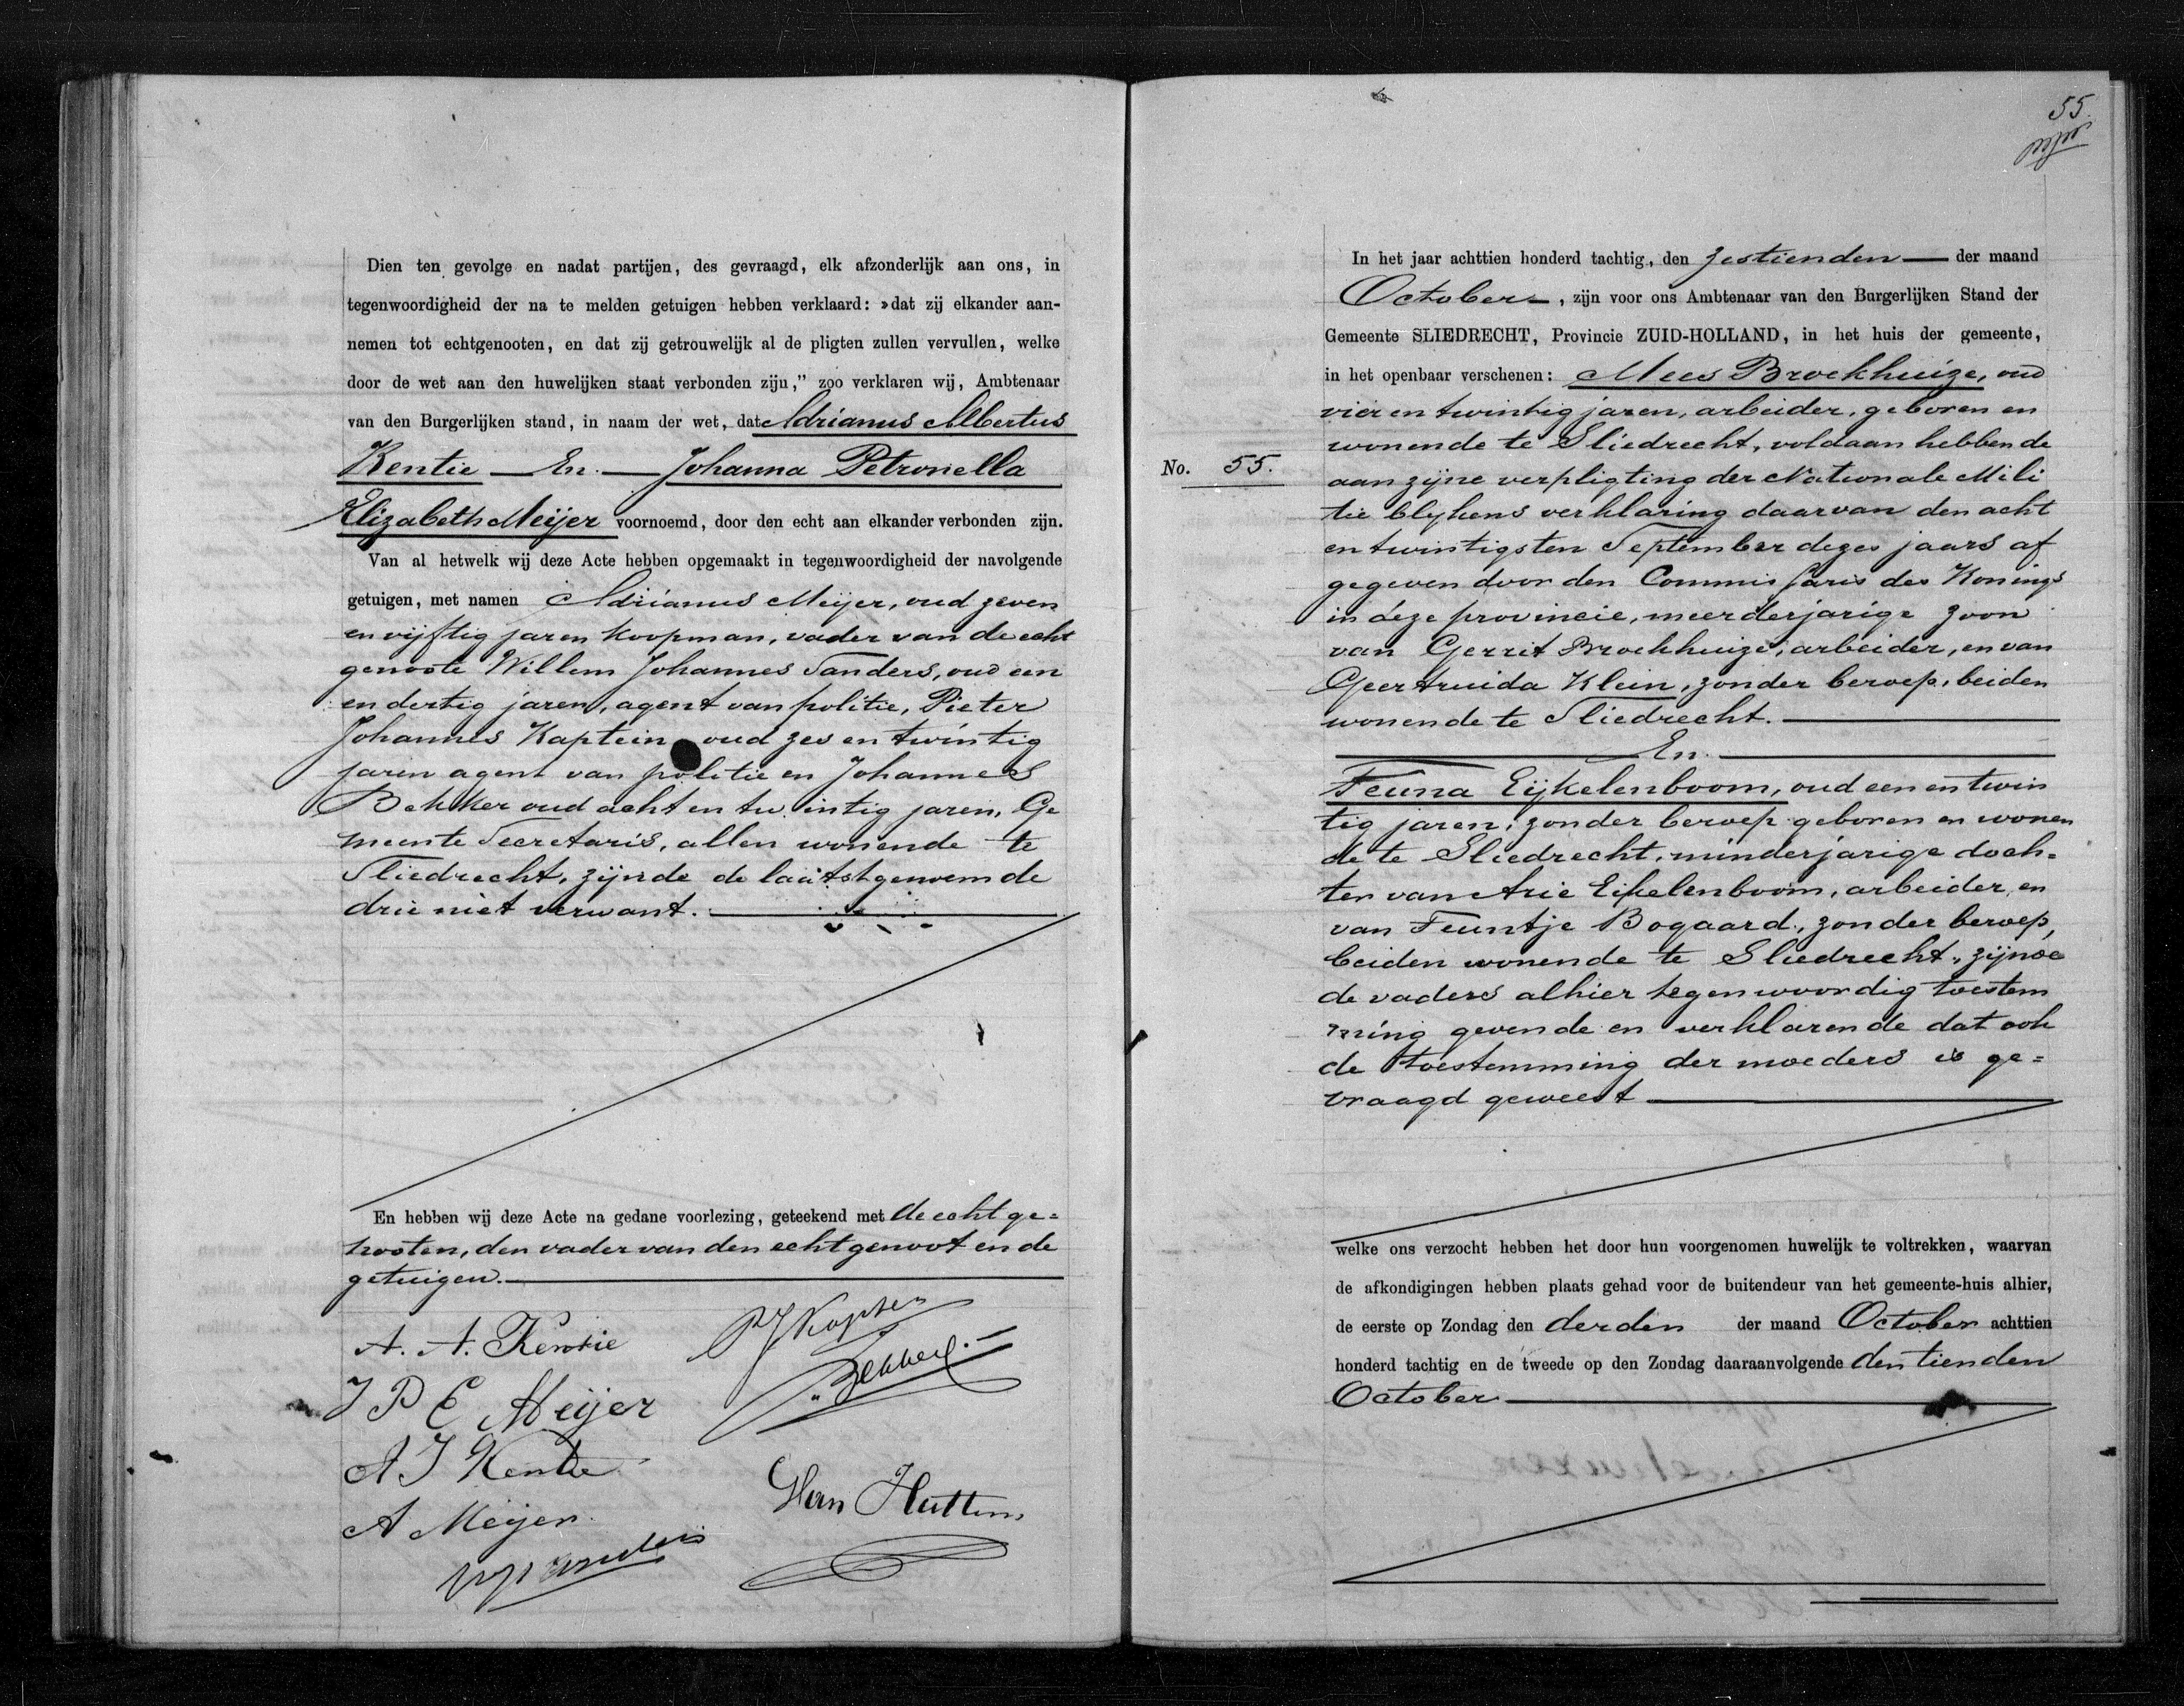 Dien ten gevolge en nadat partijen, des gevraagd, elk afzonderlijk aan ons, in
tegenwoordigheid der na te melden getuigen hebben verklaard: »dat zij elkander aan-
nemen tot echtgenooten, en dat zij getrouwelijk al de pligten zullen vervullen, welke
door de wet aan den huwelijken staat verbonden zijn,” zoo verklaren wij, Ambtenaar
van den Burgerlijken stand, in naam der wet, dat Adrianus Albertus
Kentie — En. — Johanna Petronella
Elizabeth Meijer voornoemd, door den echt aan elkander verbonden zijn.
Van al hetwelk wij deze Acte hebben opgemaakt in tegenwoordigheid der navolgende
getuigen, met namen Adrianus Meijer, oud zeven
en vijftig jaren koopman, vader van de echt
genoote Willem Johannes Sanders, oud een
en dertig jaren, agent van politie, Pieter
Johannes Kaptein oud zes en twintig
jaren agent van politie en Johannes
Bekker oud acht en twintig jaren, Ge
meente Secretaris, allen wonende te
Sliedrecht, zijnde de laatstgenoemde
drie niet verwant.
En hebben wij deze Acte na gedane voorlezing, geteekend met de echtge=
nooten, den vader van den echtgenoot en de
getuigen.
A. A. Kentie
J P E Meijer
A J Kentie
A Meijer
WJSanders
PJKaptein
Bekker
Han Hutten
55.
No. 55.
In het jaar achttien honderd tachtig, den zestienden — der maand
October —, zijn voor ons Ambtenaar van den Burgerlijken Stand der
Gemeente SLIEDRECHT, Provincie ZUID-HOLLAND, in het huis der gemeente,
in het openbaar verschenen: Mees Broekhuize, oud
vier en twintig jaren, arbeider, geboren en
wonende te Sliedrecht, voldaan hebbende
aan zijne verpligting der Nationale Mili
tie blijkens verklaring daarvan den acht
en twintigsten September dezes jaars af
gegeven door den Commissaris des Konings
in deze provincie, meerderjarige zoon
van Gerrit Broekhuize, arbeider, en van
Geertruida Klein, zonder beroep, beiden
wonende te Sliedrecht.
En.
Teuna Eijkelenboom, oud een en twin
tig jaren, zonder beroep geboren en wonen
de te Sliedrecht, minderjarige doch=
ter van Arie Eijkelenboom, arbeider, en
van Teuntje Bogaard, zonder beroep,
beiden wonende te Sliedrecht, zijnde
de vaders alhier tegenwoordig toestem
ming gevende en verklarende dat ook
de toestemming der moeders is ge=
vraagd geweest
welke ons verzocht hebben het door hun voorgenomen huwelijk te voltrekken, waarvan
de afkondigingen hebben plaats gehad voor de buitendeur van het gemeente-huis alhier,
de eerste op Zondag den derden der maand October achttien
honderd tachtig en de tweede op den Zondag daaraanvolgende den tienden
October